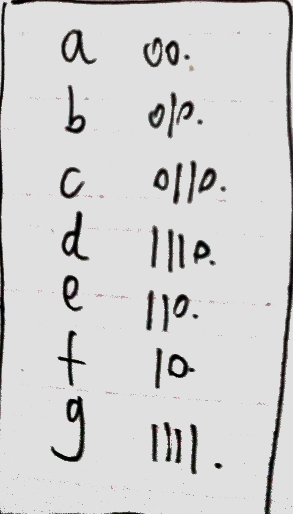 a 00.
b 010.
c 0110.
d 1110.
e 110.
f 10.
g 1111.